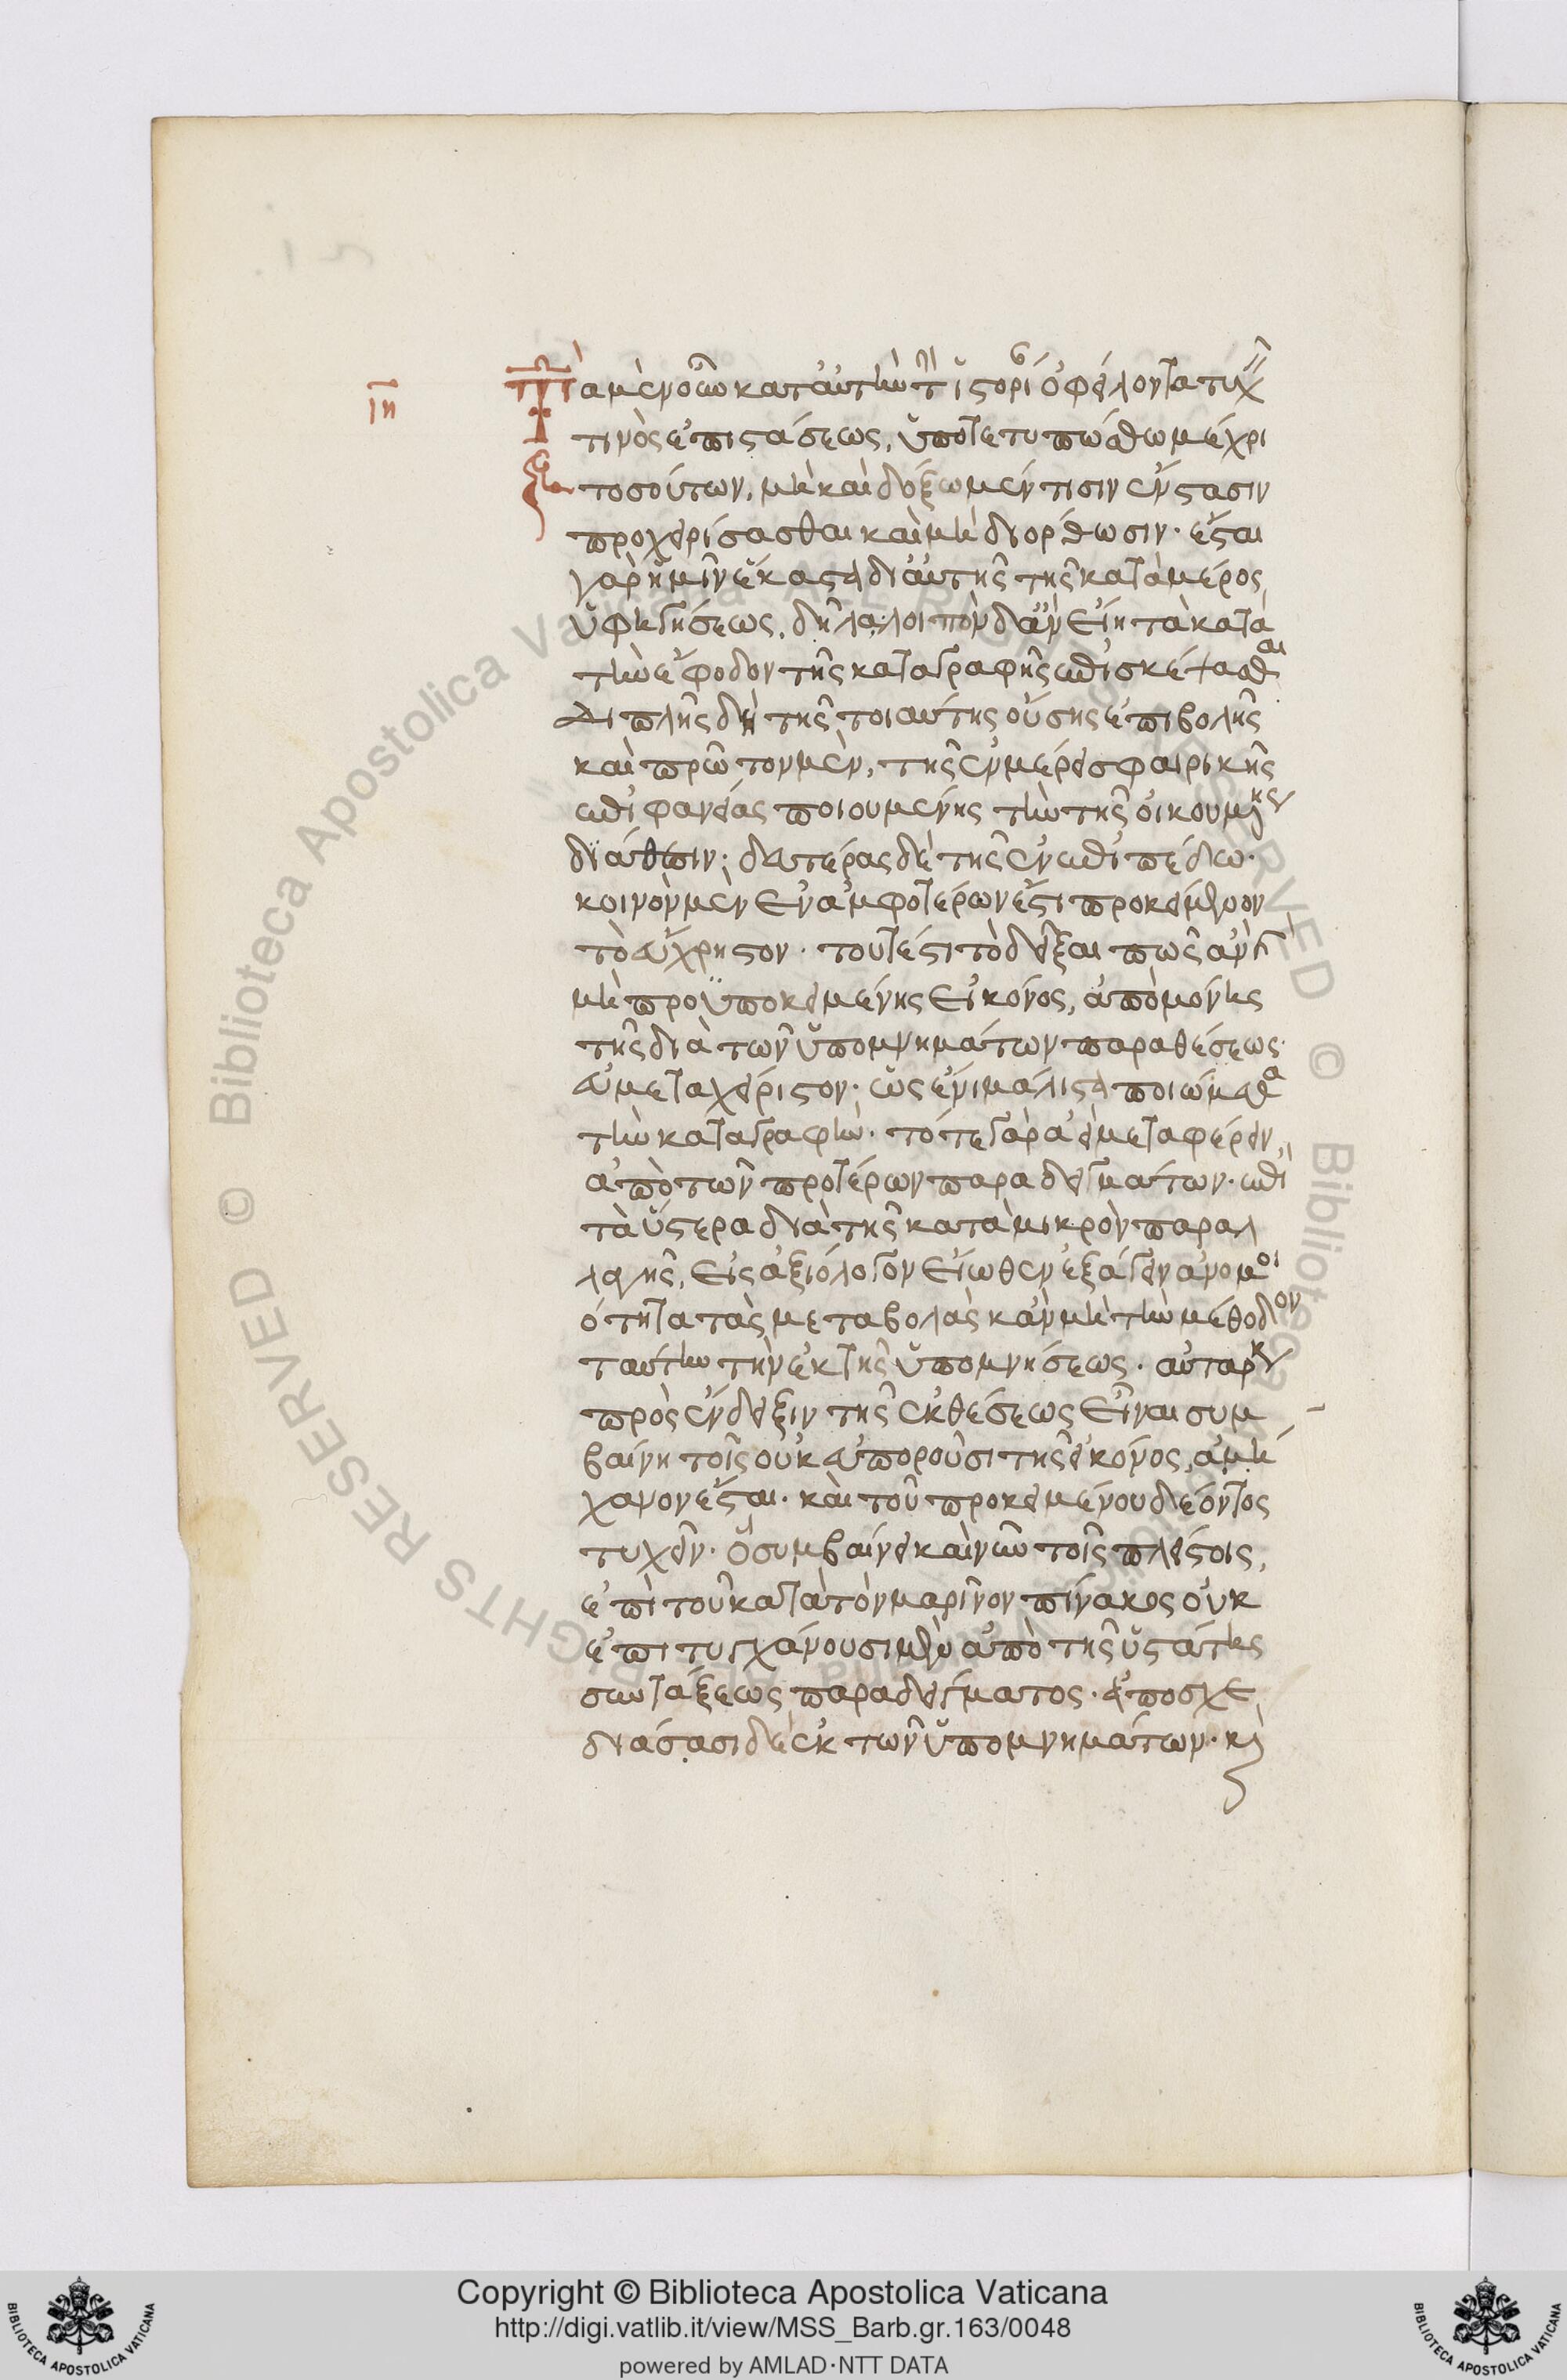 ιη
Τὰ μὲν οὖν κατ' αὐτὴν τὴν ἱστορίαν ὀφείλοντα τυχεῖν
τινὸς ἐπιστάσεως, ὑποτετυπώσθω μέχρι
τοσούτων, μὴ καὶ δόξωμεν τισὶν ἔνστασιν
προχειρίσασθαι καὶ μὴ διόρθωσιν· ἔσται
γὰρ ἡμῖν ἕκαστα δι' αὐτῆς τῆς κατὰ μέρος
ὑφηγήσεως, δῆλα· λοιπὸν δ' ἂν εἴη τὰ κατὰ
τὴν ἔφοδον τῆς καταγραφῆς ἐπισκέψασθαι
Διπλῆς δὴ τῆς τοιαύτης οὔσης ἐπιβολῆς
καὶ πρῶτον μὲν, τῆς ἐν μέρει σφαιρικῆς
ἐπιφανείας ποιουμένης τὴν τῆς οἰκουμένης
διάθεσιν· δευτέρας δὲ τῆς ἐν ἐπιπέδω·
κοινὸν μὲν ἐν ἀμφοτέρων ἐστι προκείμενον
τὸ εὔχρηστον· τουτέστι τὸ δεῖξαι πῶς ἂν καὶ
μὴ προϋποκειμένης εἰκόνος, ἀπὸ μόνης
τῆς διὰ τῶν ὑπομνημάτων παραθέσεως·
εὐμεταχείριστον· ὡς ἔνι μάλιστα ποιώμεθα
τὴν καταγραφήν· τό τε γὰρ ἀεὶ μεταφέρειν
ἀπὸ τῶν προτέρων παραδειγμάτων· ἐπὶ
τὰ ὕστερα διὰ τῆς κατὰ μικρὸν παραλ
λαγῆς, εἰς ἀξιόλογον εἴωθεν ἐξάγειν ἀνομοι
ότητα τὰς μεταβολὰς κἂν μὴ τὴν μέθοδον
ταύτην τὴν ἐκ τῆς ὑπομνήσεως· αὐτάρκη
πρὸς ἔνδειξιν τῆς ἐκθέσεως εἶναι συμ
βαίνη τοῖς οὐκ εὐποροῦσι τῆς εἰκόνος, ἀμή
χανον ἔσται· καὶ τοῦ προκειμένου δεόντος
τυχεῖν· ὃ συμβαίνει καὶ νῦν τοῖς πλείστοις,
ἐπὶ τοῦ κατὰ τὸν μαρῖνον πίνακος οὐκ
ἐπιτυγχάνουσι μὲν ἀπὸ τῆς ὑστάτης
συντάξεως παραδείγματος· ἀποσχε
διάσασι δὲ ἐκ τῶν ὑπομνημάτων· καὶ
Copyright © Biblioteca Apostolica Vaticana
http://digi.vatlib.it/view/MSS_Barb.gr.163/0048
powered by AMLAD·NTT DATA